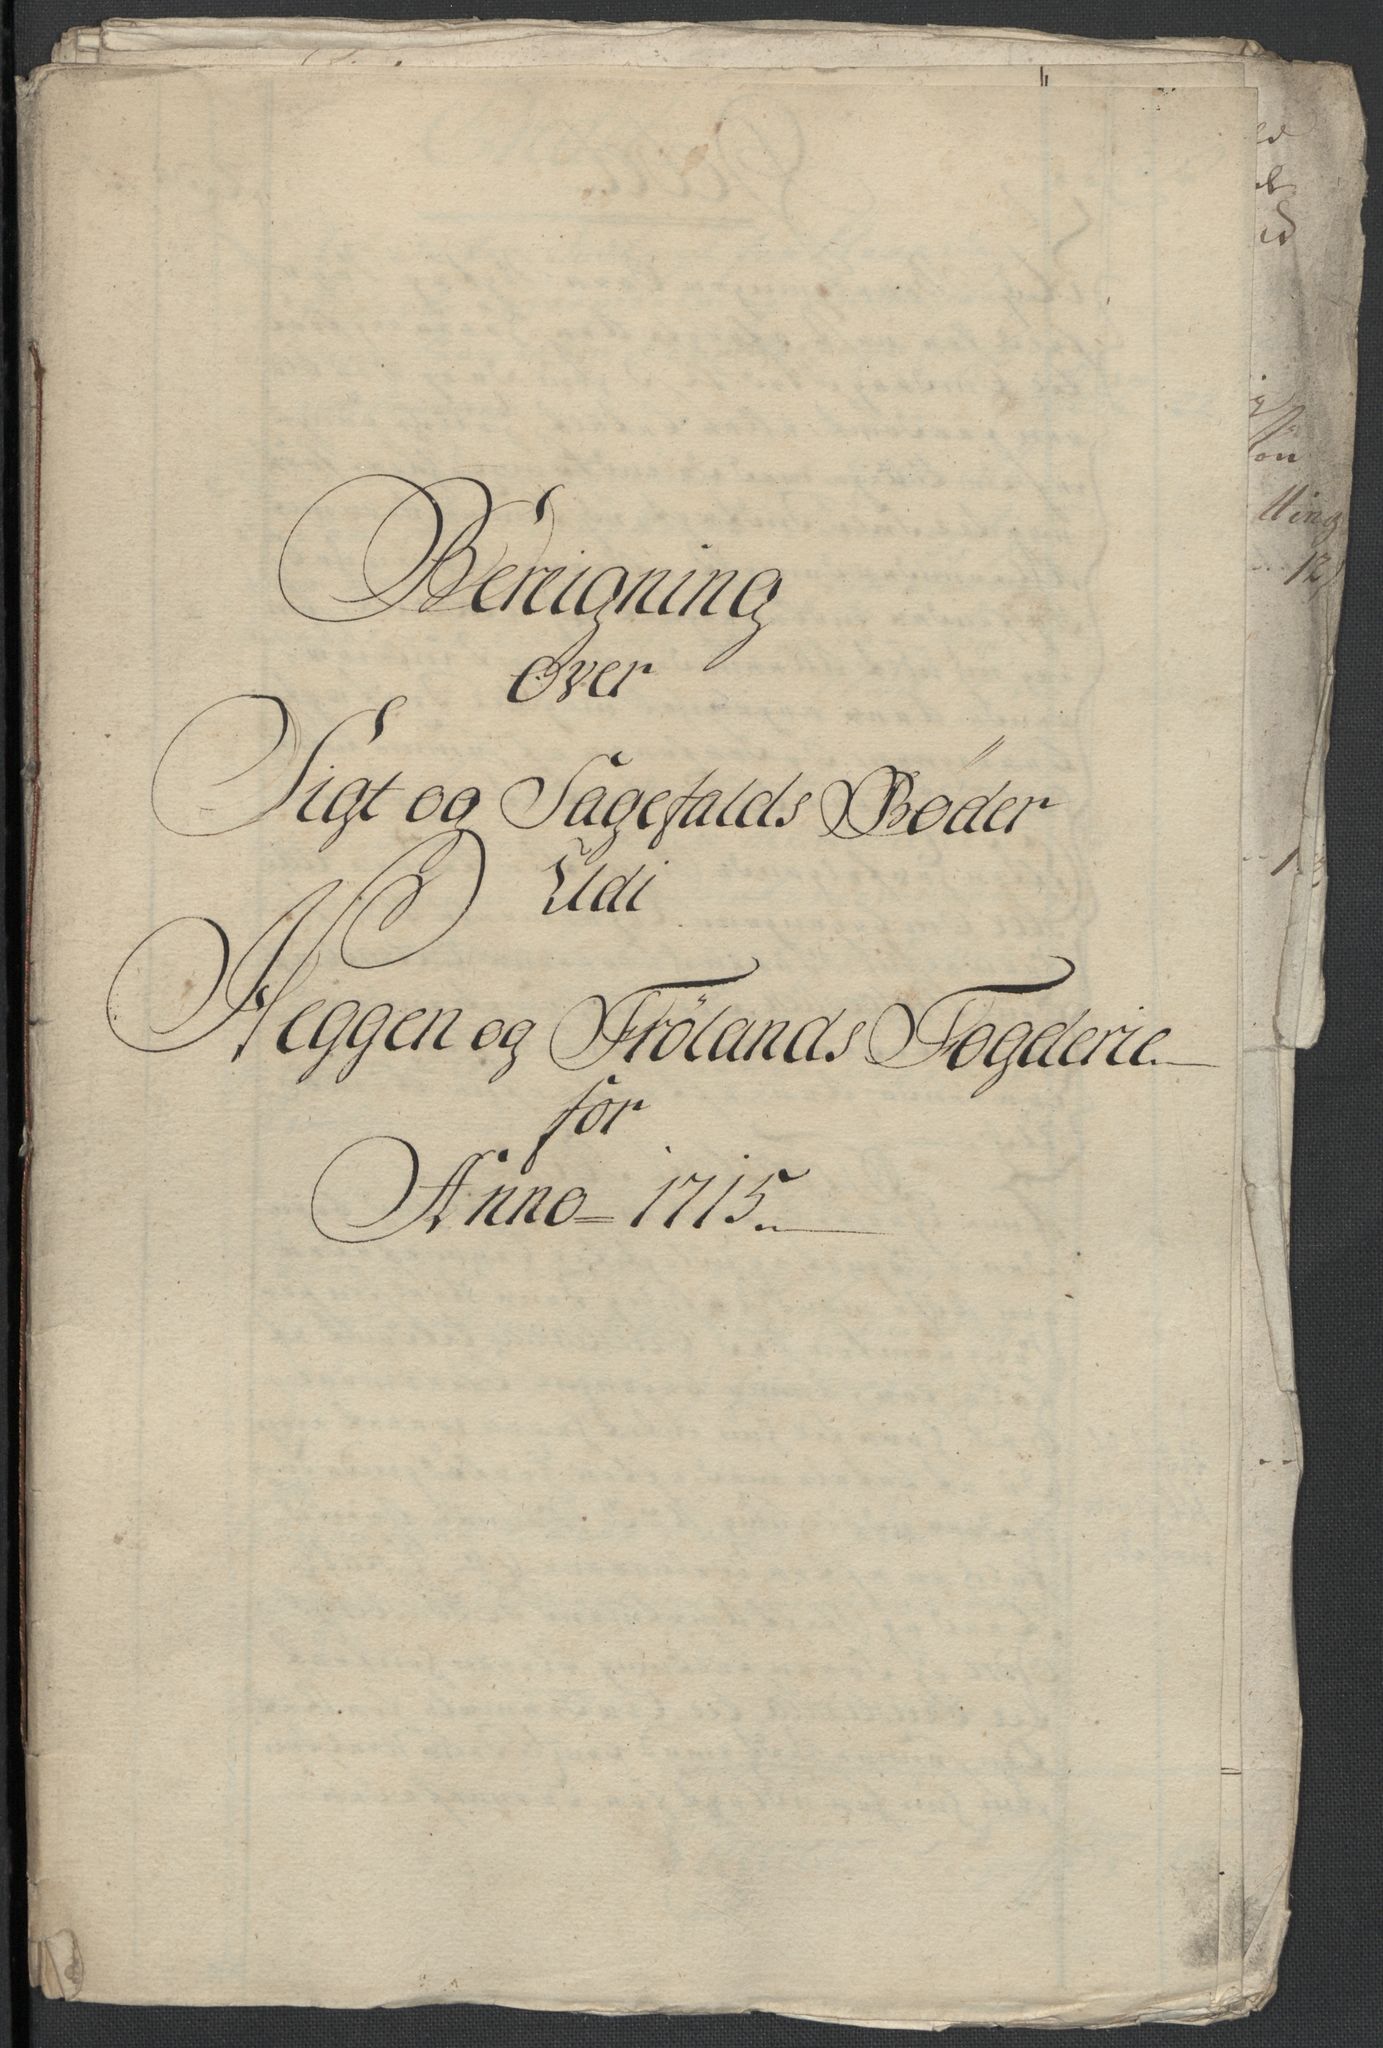 Bereigning
over
Sigt og Sagefalds Bøder
Udi
Heggen og Frölands Fogderie
for
Anno 1715
lling
12